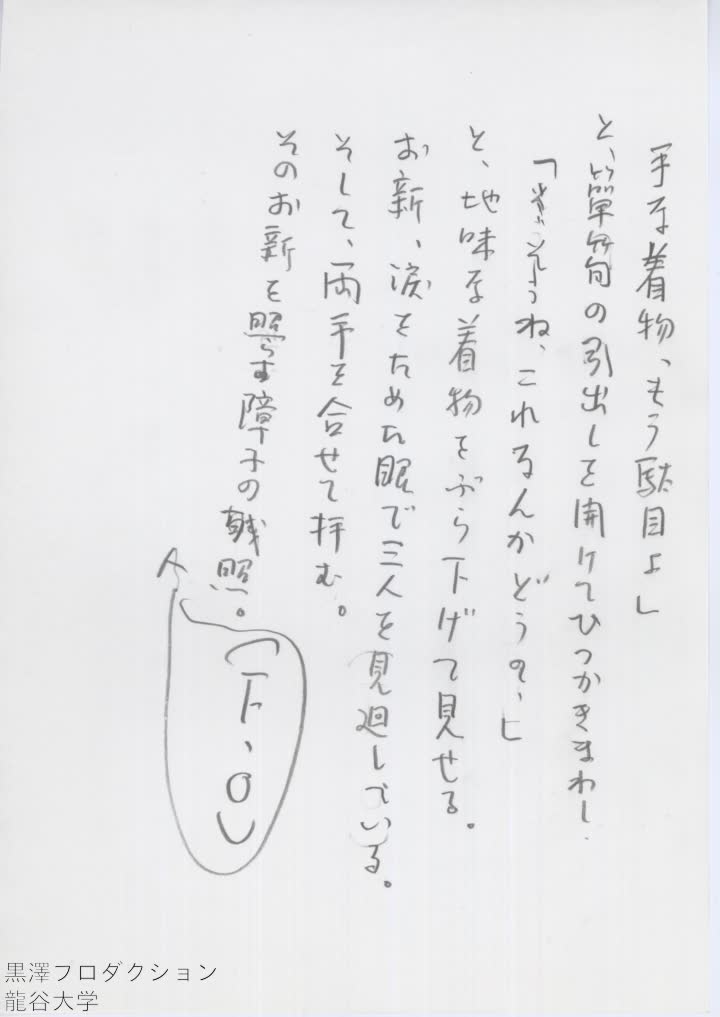 手な着物、もう駄目よ」
と、簞笥の引出しを開けてひつかきまわし
「そうね、これなんかどうの、」
と、地味な着物をぶら下げて見せる。
お新、涙をためた眼で三人を見廻している。
そして、両手を合せて拝む。
そのお新を照らす障子の残照。
(F・O)
黒澤プロダクション
龍谷大学